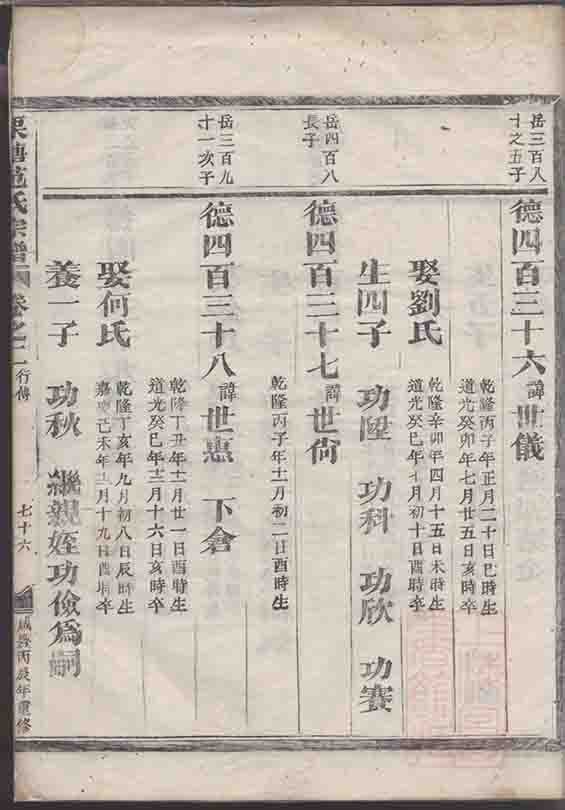 岳三百八
十之五子
德四百三十六 諱世儀
乾隆丙子年正月二十日巳時生
道光癸卯年七月廿五日亥時卒
娶劉氏
乾隆辛卯年四月十五日未時生
道光癸巳年七月初十日酉時卒
生四子 功陞 功科 功欣 功賽
岳四百八
長子
德四百三十七 諱世尙
乾隆丙子年十一月初二日酉時生
岳三百九
十一次子
德四百三十八 諱世惠 下倉
乾隆丁丑年十二月廿一日酉時生
道光癸巳年十二月十六日亥時卒
娶何氏
乾隆丁亥年九月初八日辰時生
嘉慶己未年三月十九日酉時卒
養一子 功秋 繼親姪功儉爲嗣
范氏宗譜 卷之 行傳 七十六 咸豐丙辰年重修